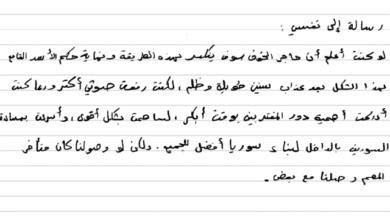 رسالة إلى نفسي :
لو كنت أعلم أن حاجز الخوف سوف ينكسر بهذه الطريقة ونهاية حكم الأسد القائم
بهذا الشكل بعد عذاب سنين طويلة وظلم، لكنت رفعت صوتي أكثر وربما كنت
أدركت أهمية دور المغتربين بوقت أبكر، لساهمت بشكل أقوى، وأسرع بمساندة
السوريين بالداخل لبناء سوريا أفضل للجميع. ولكن لو وصولنا كان متأخر
المهم وصلنا مع بعض.